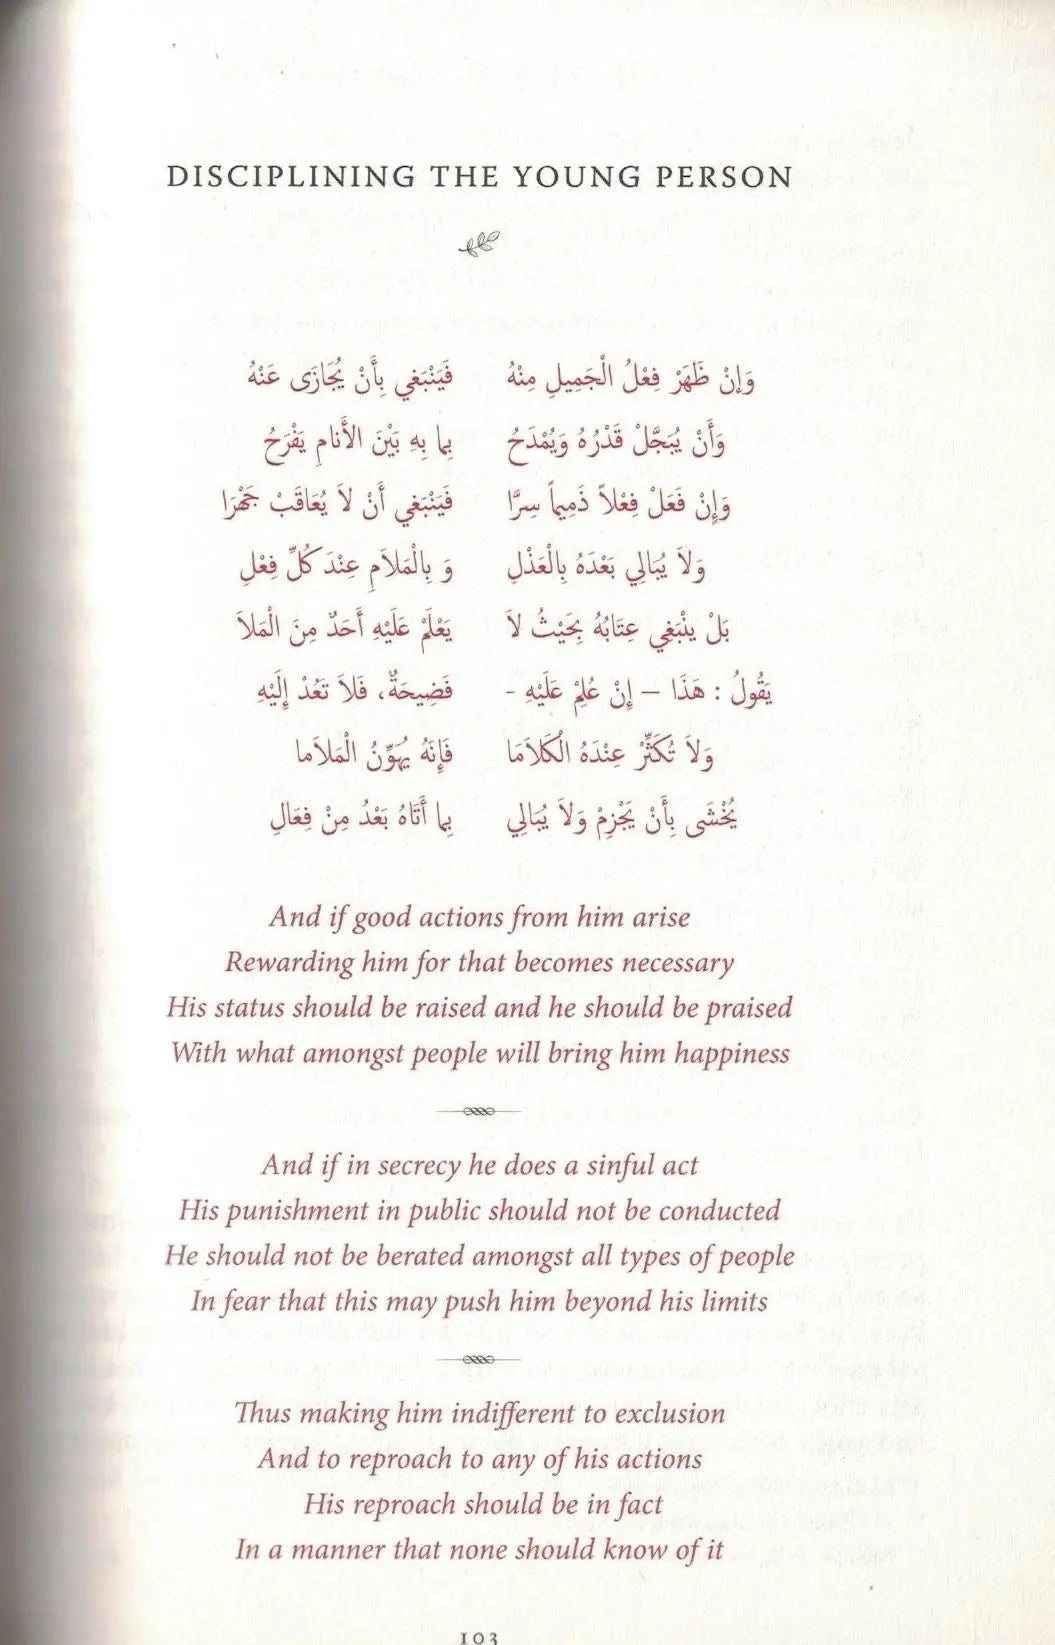 DISCIPLINING THE YOUNG PERSON
وَإِنْ ظَهَرْ فِعْلُ الْجَمِيلِ مِنْهُ فَيَنْبَغِي بِأَنْ يُجَازَى عَنْهُ
وَأَنْ يُبَجَّلْ قَدْرُهُ وَيُمْدَحُ بِما بِهِ بَيْنَ الأَنامِ يَفْرَحُ
وَإِنْ فَعَلْ فِعْلاً ذَمِيماً سِرَّا فَيَنْبَغِي أَنْ لاَ يُعَاقَبْ جَهْرَا
وَلاَ يُبَالِي بَعْدَهُ بِالْعَذْلِ وَ بِالْمَلاَمِ عِنْدَ كُلِّ فِعْلِ
بَلْ يَنْبَغِي عِتَابُهُ بِحَيْثُ لَا يَعْلَمْ عَلَيْهِ أَحَدٌ مِنَ الْمَلاَ
يَقُولُ : هَذَا – إِنْ عُلِمْ عَلَيْهِ - فَضِيحَةٌ، فَلاَ تَعُدْ إِلَيْهِ
وَلاَ تُكَثِّرْ عِنْدَهُ الْكَلاَمَا فَإِنَّهُ يُهَوِّنُ الْمَلاَما
يُخْشَى بِأَنْ يَجْزِمْ وَلاَ يُبَالِي بِما أَتَاهُ بَعْدُ مِنْ فِعَالِ
And if good actions from him arise
Rewarding him for that becomes necessary
His status should be raised and he should be praised
With what amongst people will bring him happiness
And if in secrecy he does a sinful act
His punishment in public should not be conducted
He should not be berated amongst all types of people
In fear that this may push him beyond his limits
Thus making him indifferent to exclusion
And to reproach to any of his actions
His reproach should be in fact
In a manner that none should know of it
103